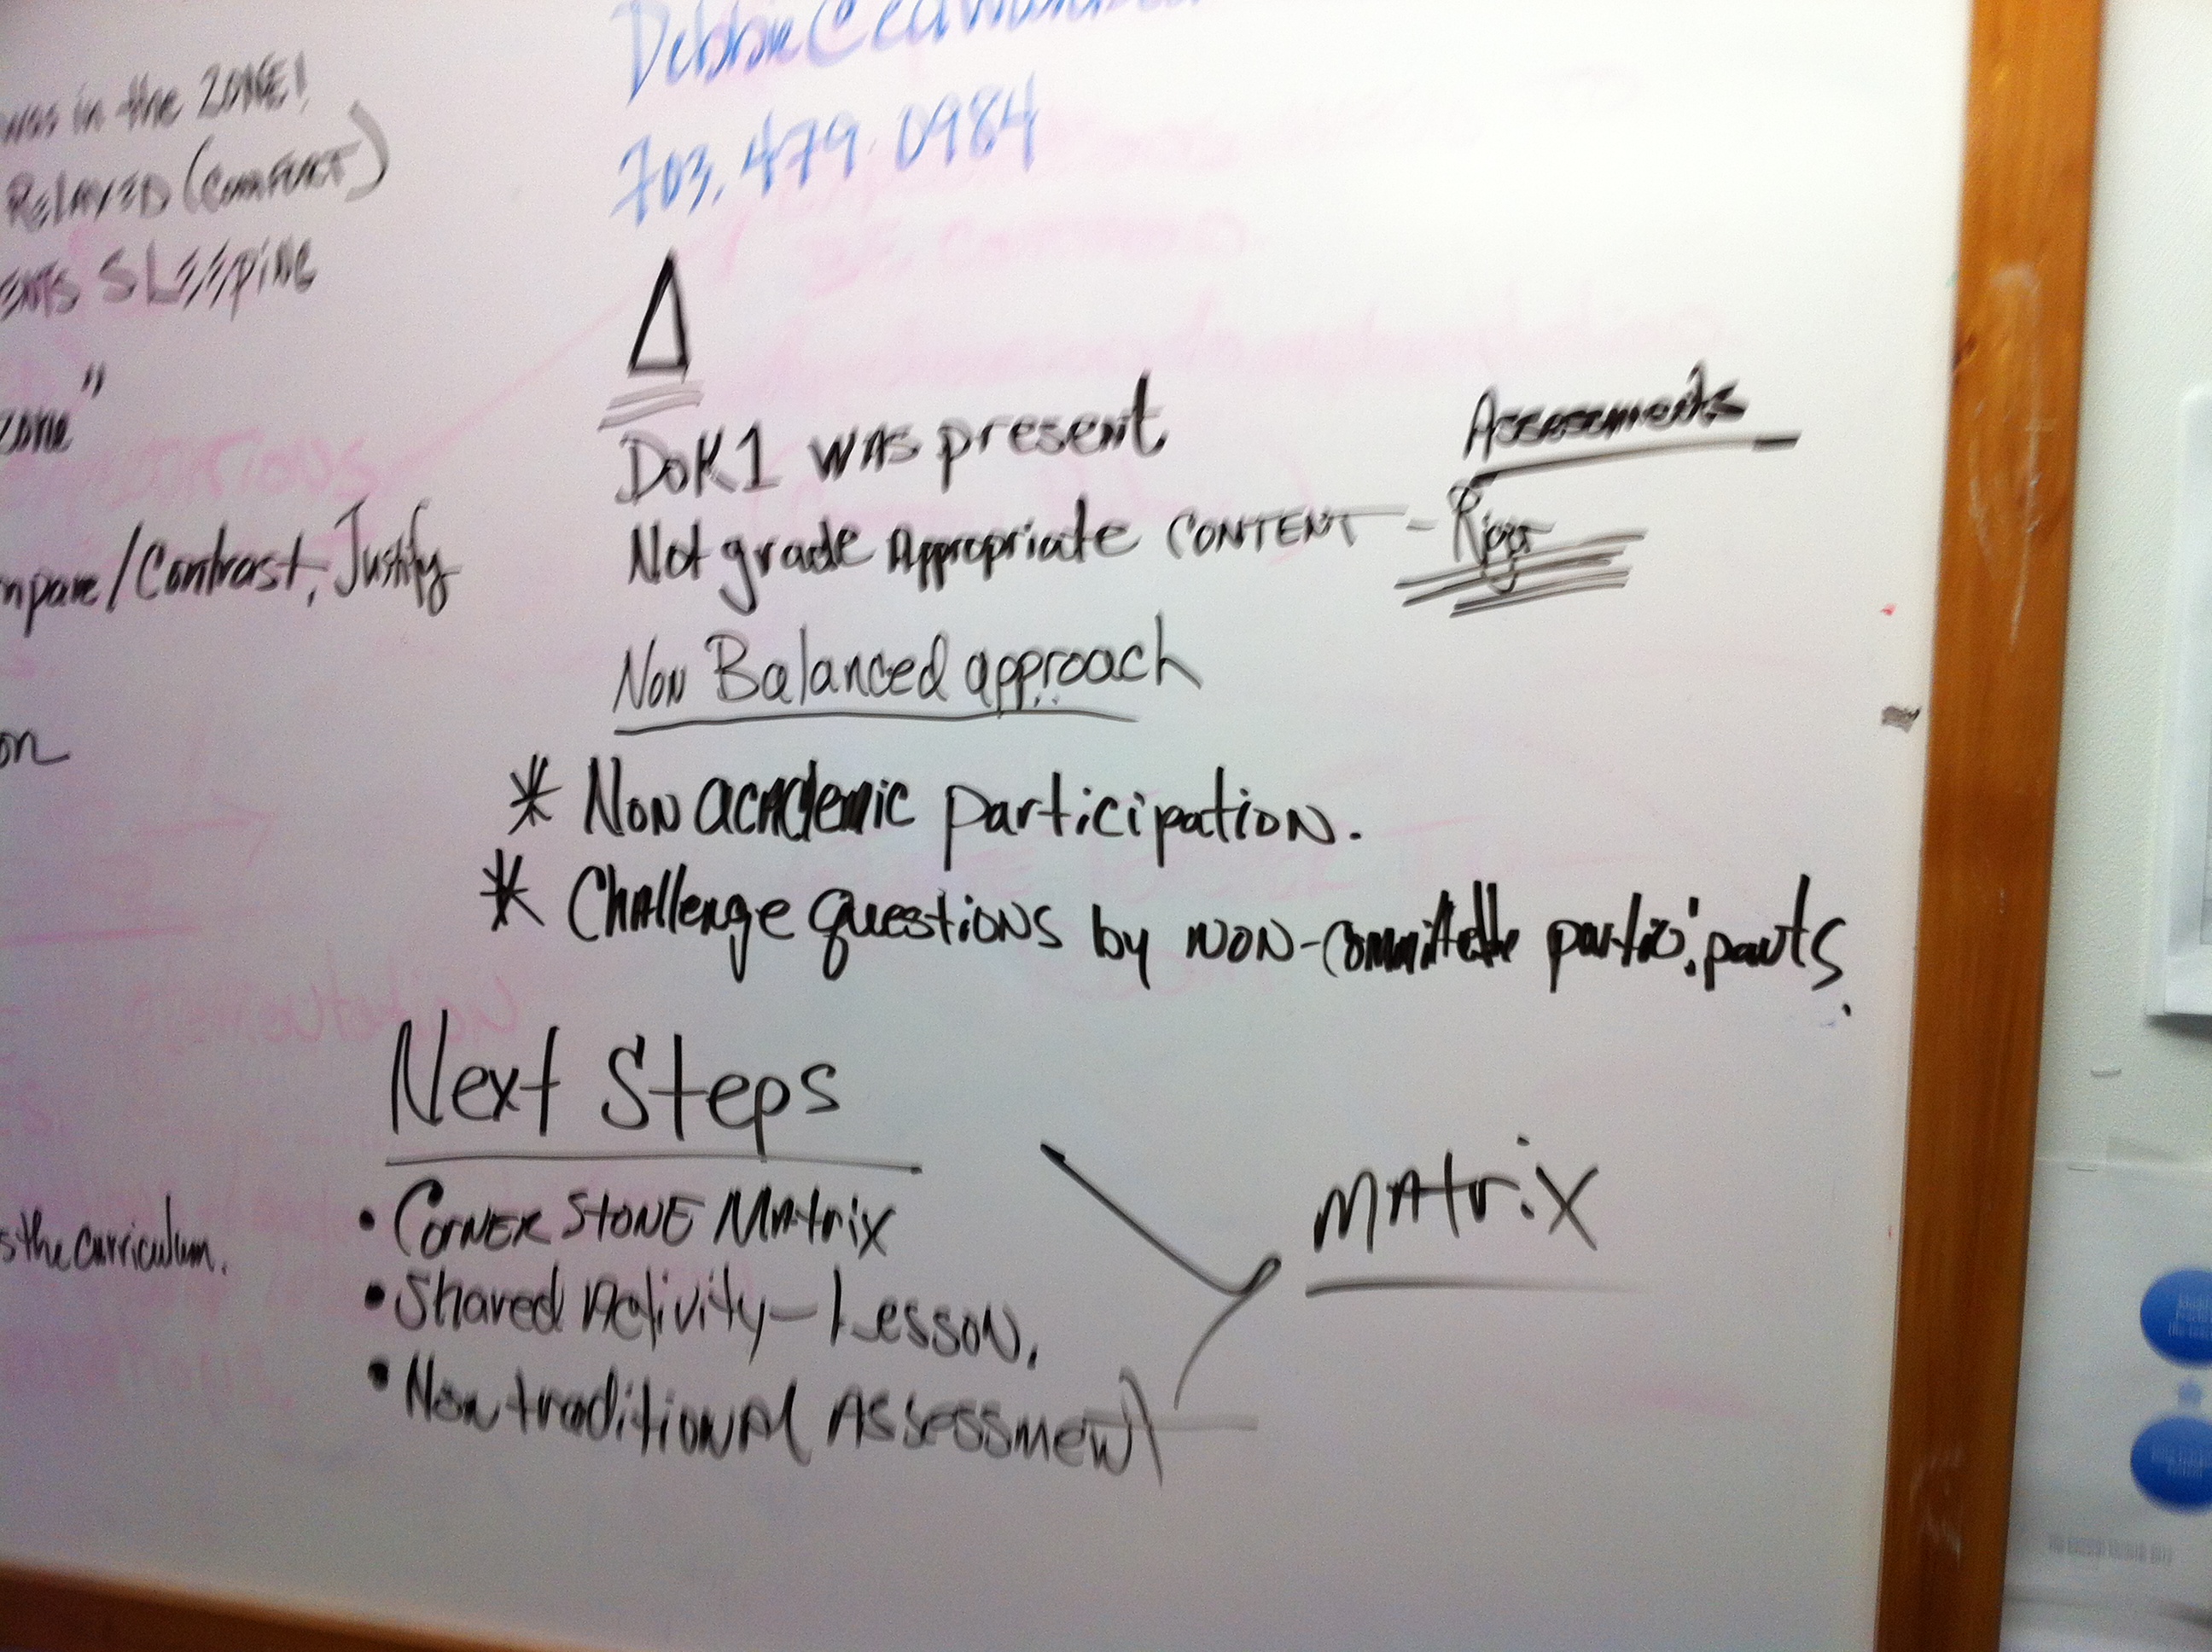 was in the ZONE!
RELAXED (COMFORT)
ENTS SLEEPING
"
zone
mpare/Contrast, Justify
on
s the curriculum.
Debbie
703.479.0984
Δ
DOK1 WAS present
Not grade Appropriate CONTENT - Rigor
Assessments
Non Balanced approach
* Non academic participation.
* Challenge questions by non-committee participants.
Next Steps
• CORNER STONE MAtrix
• Shared Activity - Lesson.
• Non traditional Assessment
MAtrix